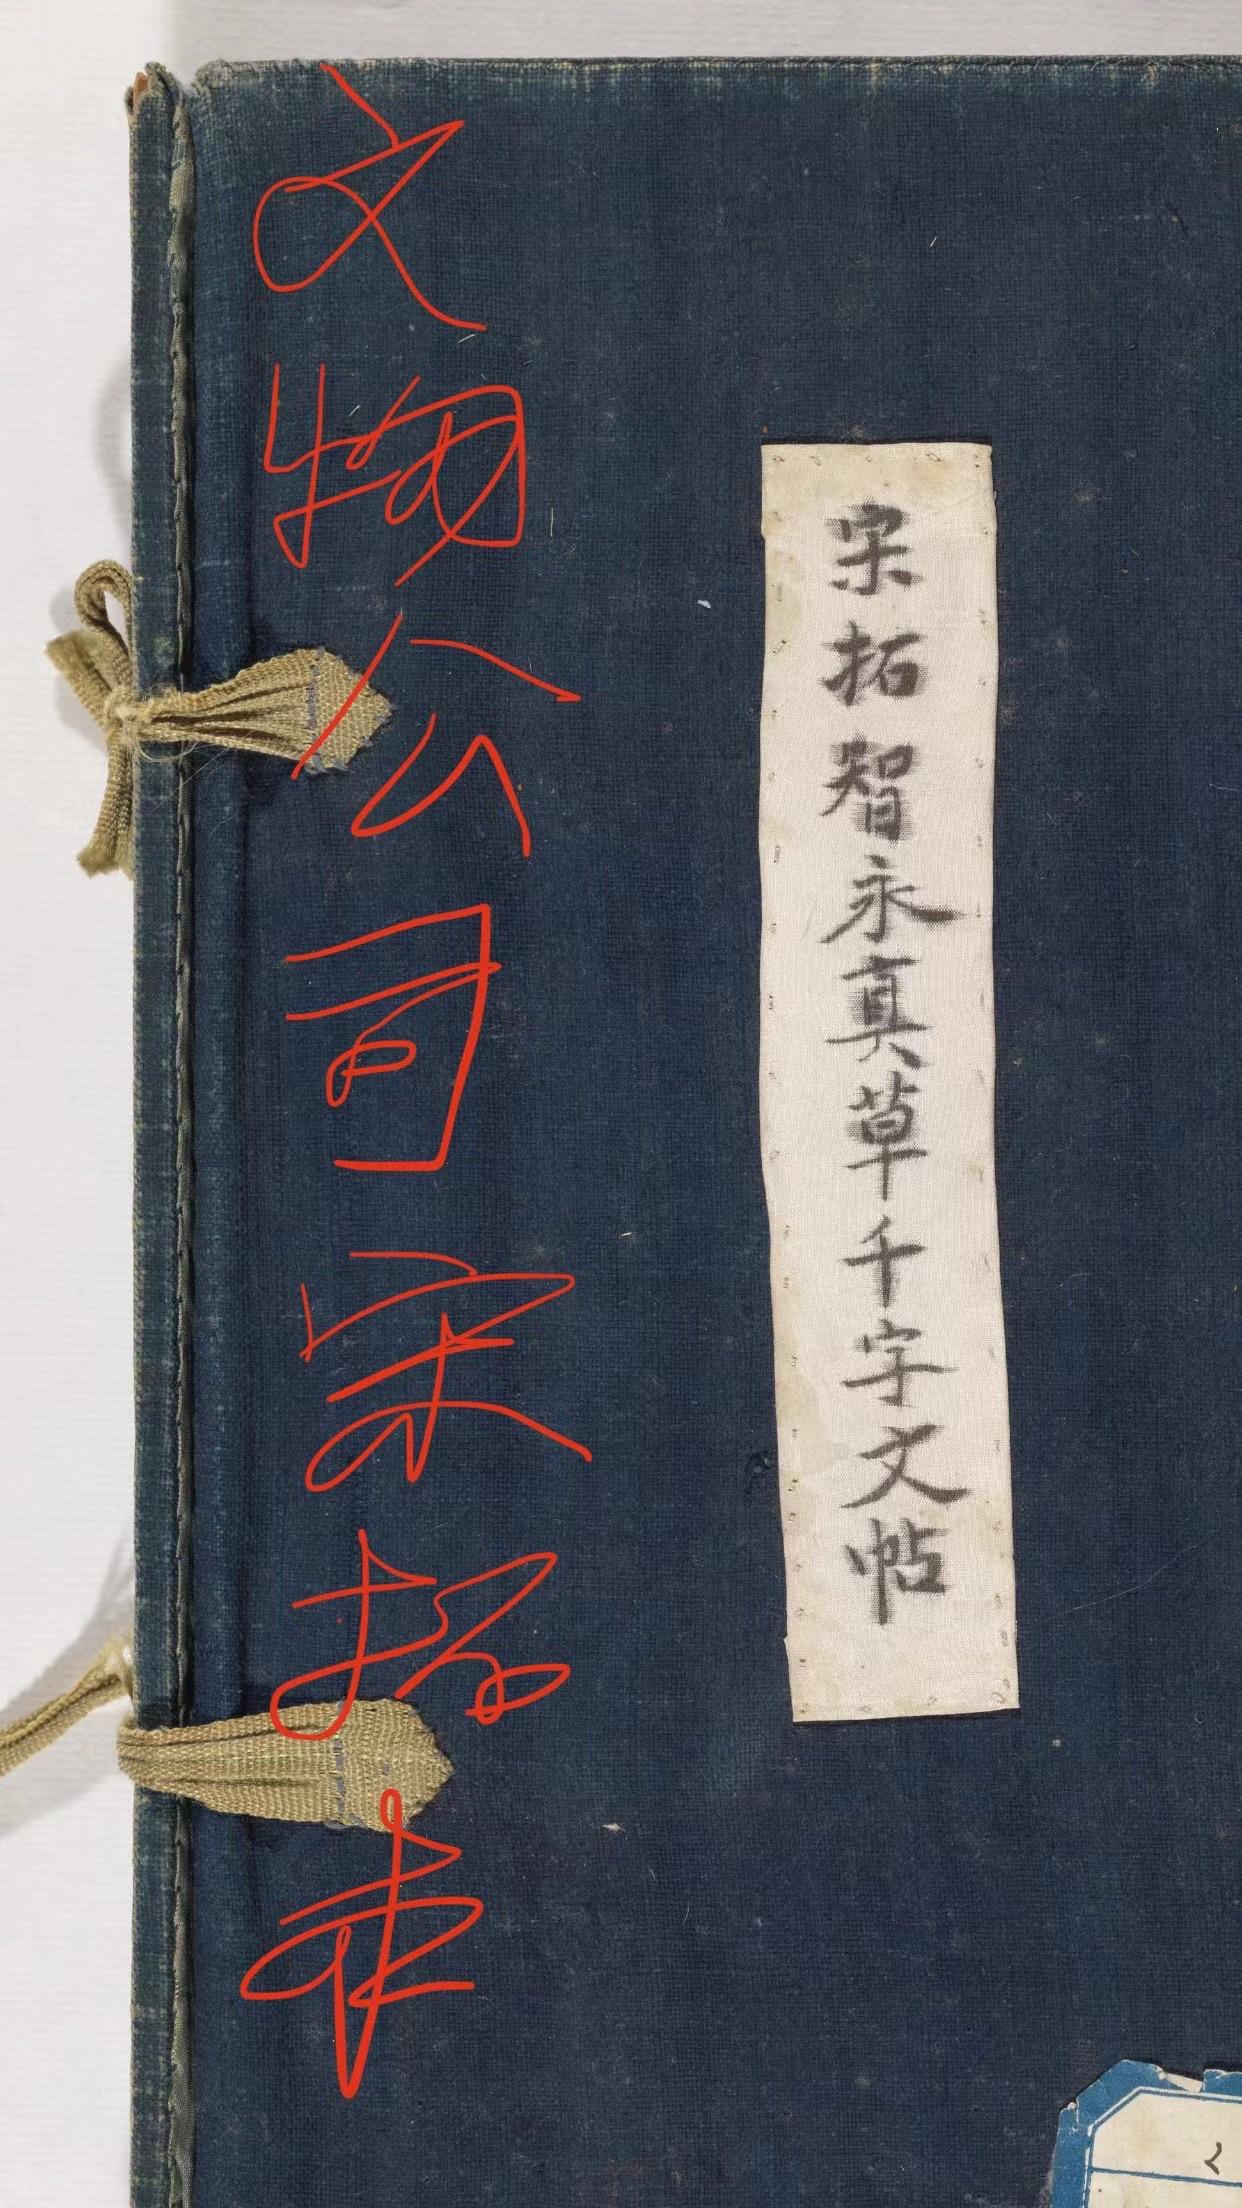 宋拓智永真草千字文帖
文物公司宋拓本